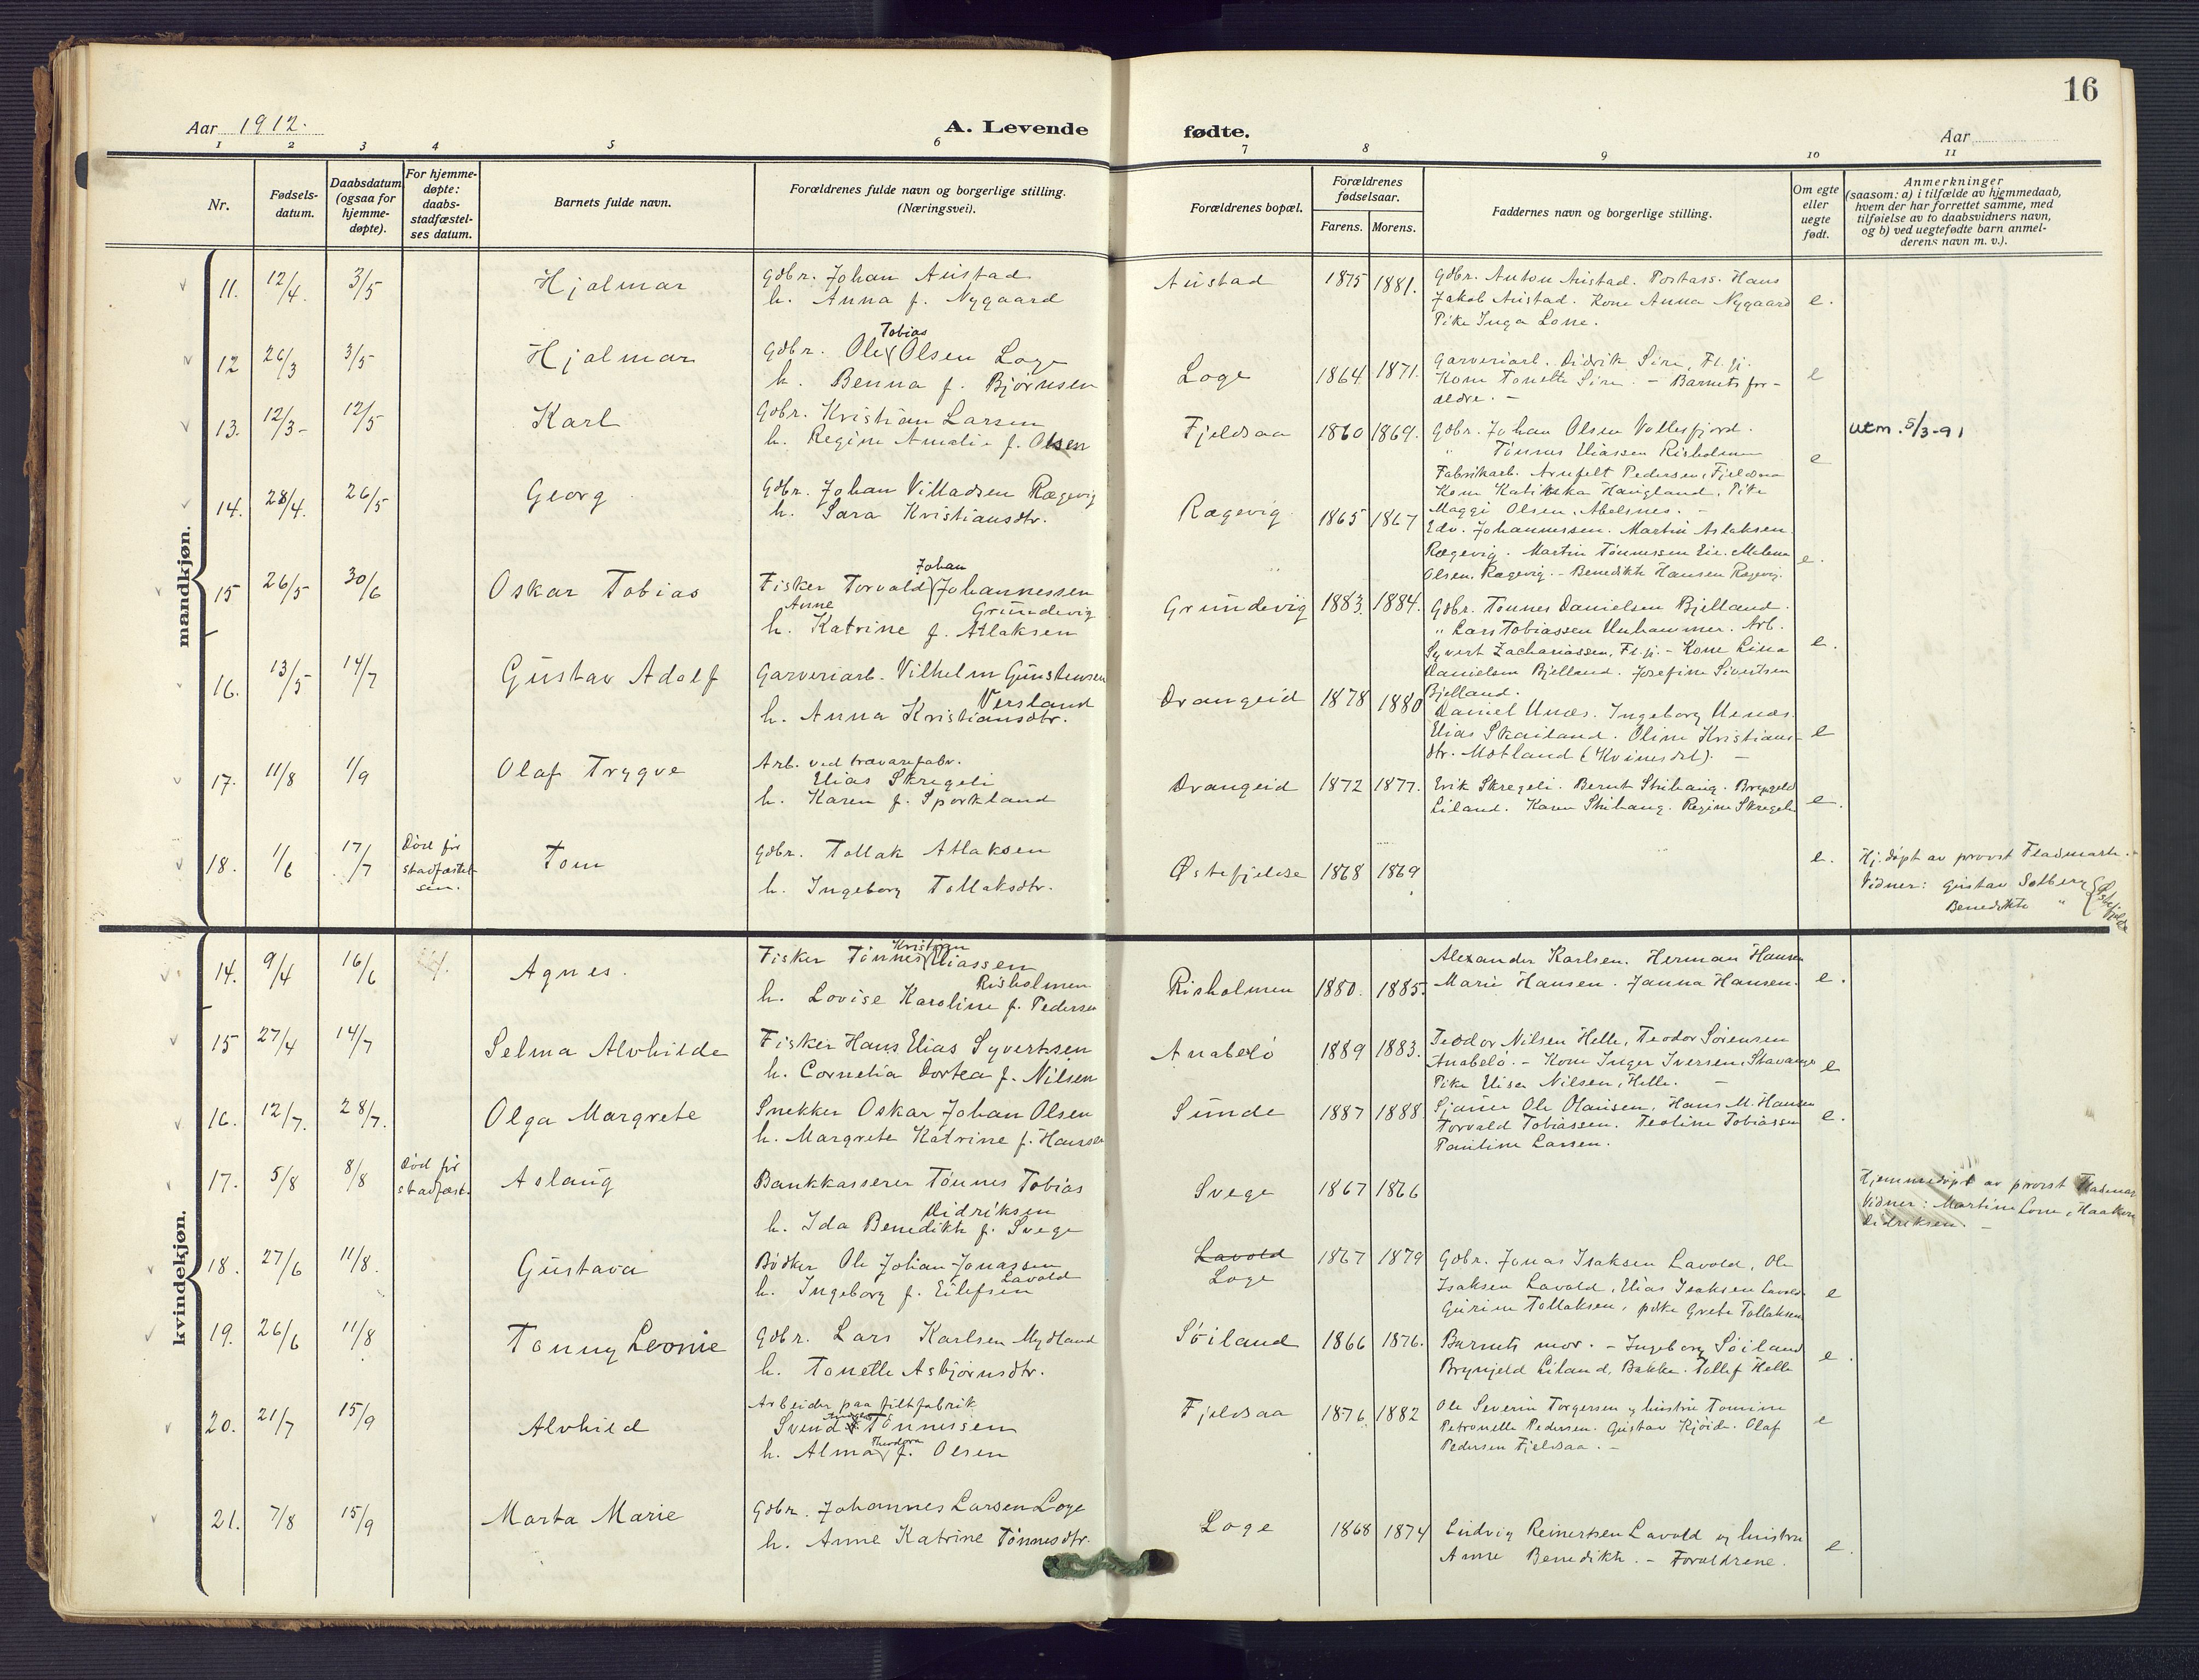 16
Aar 1912.
A. Levende
fødte.
Aar
1 2 3 4 5 6 7 8 9 10 11
Nr.
Fødsels-
datum.
Daabsdatum
(ogsaa for
hjemme-
døpte).
For hjemme-
døpte:
daabs-
stadfæstel-
ses datum.
Barnets fulde navn.
Forældrenes fulde navn og borgerlige stilling.
(Næringsvei).
Forældrenes bopæl.
Forældrenes
fødselsaar.
Farens. Morens.
Faddernes navn og borgerlige stilling.
Om egte
eller
uegte
født.
Anmerkninger
(saasom: a) i tilfælde av hjemmedaab,
hvem der har forrettet samme, med
tilføielse av to daabsvidners navn,
og b) ved uegtefødte barn anmel-
derens navn m. v.).
mandkjøn.
11. 12/4. 3/5 Hjalmar
Gdbr. Johan Austad
h. Anna f. Nygaard
Austad 1875 1881.
Gdbr. Anton Austad. Postass. Hans
Jakob Austad. Kone Anna Nygaard
Pike Inga Lone.
e.
12 26/3 3/5 Hjalmar
Tobias
Gdbr. Ole Olsen Loge
h. Benna f. Bjørnsen
Loge 1864 1871.
Garveriarb. Didrik Sira, Fl.fj.
Kone Tonette Sira. - Barnets for-
ældre. -
e
13. 12/3- 12/5 Karl
Gdbr. Kristian Larsen
h. Regine Amalie f. Olsen
Fjeldsaa 1860 1869.
Gdbr. Johan Olsen Vollesfjord.
" Tønnes Eliassen Risholmen
Fabrikarb. Arnfelt Pedersen, Fjeldsaa
Kone Katinka Haugland, Pike
Maggi Olsen, Abelsnes. -
e
utm. 5/3-91
14. 28/4. 26/5 Georg
Gdbr. Johan Villadsen Rægevig
h. Sara Kristiansdtr.
Rægevig. 1865 1867
Edv. Johannessen. Martin Aslaksen
Rægevig. Martin Tønnessen Eie. Malena
Olsen, Rægevig. - Benedikte Hansen Rægevig.
e.
15 26/5 30/6 Oskar Tobias
Johan
Fisker Torvald Johannessen
Anne Grundevig
h. Katrine f. Atlaksen
Grundevig 1883. 1884.
Gdbr. Tønnes Danielsen Bjelland.
" Lars Tobiassen Unhammer. Arb.
Syvert Zachariassen, Fl.fj. - Kone Lina
Danielsen Bjelland. Josefine Sivertsen
Bjelland.
e.
16. 13/5 14/7 Gustav Adolf
Garveriarb. Vilhelm Gunstensen
Versland
h. Anna Kristiansdtr.
Drangeid 1878 1880
Daniel Unæs. Ingeborg Uenæs.
Elias Skailand. Oline Kristians-
dtr. Motland (Kvinesdal). -
e
17. 11/8 1/9 Olaf Trygve
Arb. ved trævarefabr.
Elias Skregeli
h. Karen f. Sporkland
Drangeid 1872 1877.
Erik Skregeli. Bernt Stribang. Brynjeld
Liland. Karen Stribang. Regine Skregeli
e.
18. 1/6 17/7
Død før
stadfæstel-
sen.
Tom
Gdbr. Tollak Atlaksen
h. Ingeborg Tollaksdtr.
Østefjeldse 1868 1869
e.
Hj.døpt av provst Fladmark.
Vidner: Gustav Solberg
Benedikte "
kvindekjøn.
14. 9/4 16/6 Agnes.
Kristian
Fisker Tønnes Eliassen
Risholmen
h. Lovise Karoline f. Pedersen
Risholmen 1880. 1885.
Alexander Karlsen. Herman Hansen
Marie Hansen. Janna Hansen.
e.
15 27/4 14/7 Selma Alvhilde
Fisker Hans Elias Syvertsen
h. Cornelia Dortea f. Nilsen
Anabelø 1889 1883.
Teodor Nilsen Helle, Teodor Sørensen
Anabelø. - Kone Inger Iversen, Stavanger
Pike Elise Nilsen, Helle. -
e
16. 12/7. 28/7. Olga Margrete
Snekker Oskar Johan Olsen
h. Margrete Katrine f. Hansen
Sunde 1887 1888
Sjømn Ole Olausen, Hans M. Hansen
Torvald Tobiassen. Teoline Tobiassen
Pauline Larsen.
e.
17. 5/8 8/8
Død før
stadfæst.
Aslaug
Bankkasserer Tønnes Tobias
Didriksen
h. Ida Benedikte f. Svege
Svege 1867 1866
Hjemmedøpt av provst Fladmark
Vidner: Martine Lone, Haakon
Didriksen. -
18. 27/6 11/8. Gustava
Bødker Ole Johan Jonassen
Lavold
h. Ingeborg f. Eilefsen
Lavold
Loge
1867 1879
Gdbr. Jonas Isaksen Lavold, Ole
Isaksen Lavold, Elias Isaksen Lavold.
Gurine Tollaksen, pike Grete Tollaksen
e
19. 26/6 11/8 Tonny Leonie
Gdbr. Lars Karlsen Mydland
h. Tonette Asbjørnsdtr.
Søiland 1866 1876.
Barnets mor. - Ingeborg Søiland
Brynjeld Liland, Bakke. Tollef Helle
e.
20. 21/7 15/9 Alvhild
Arbeider paa filtfabrik
Svend Tønnessen
Theodora
h. Alma f. Olsen
Fjeldsaa 1876 1882
Ole Severin Torgersen og hustru Tomine
Petronelle Pedersen. Gustav Kjøide. Olaf
Pedersen Fjeldsaa. -
e
21. 7/8 15/9 Marta Marie
Gdbr. Johannes Larsen Loge
h. Anne Katrine Tønnesdtr.
Loge 1868 1874
Ludvig Reinertsen Lavold og hustru
Anne Benedikte. - Forældrene.
e.